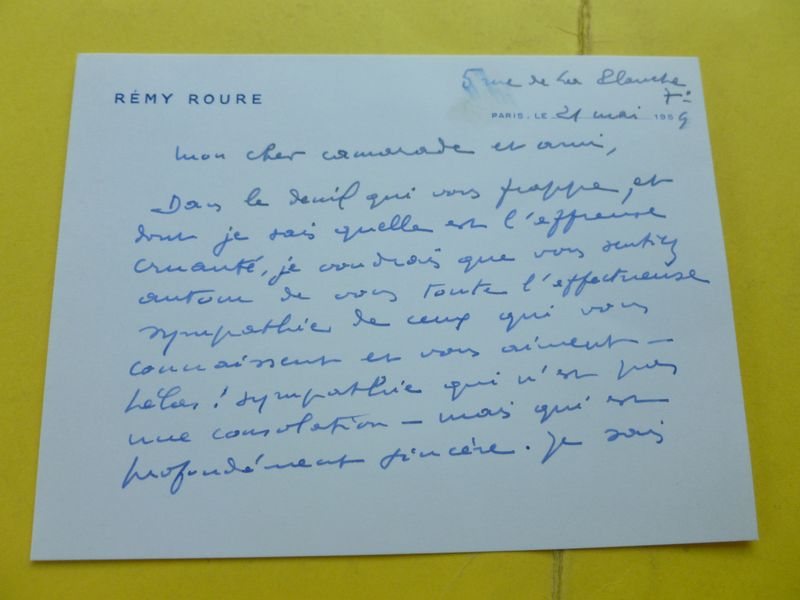 5 rue de la Planche
7e
RÉMY ROURE
PARIS, LE 21 mai 1959
Mon cher camarade et ami,
Dans le deuil qui vous frappe, et
dont je sais quelle est l'affreuse
cruauté, je voudrais que vous sentiez
autour de vous toute l'affectueuse
sympathie de ceux qui vous
connaissent et vous aiment –
hélas ! sympathie qui n'est pas
une consolation – mais qui est
profondément sincère. Je sais